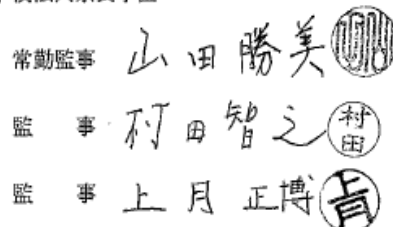 常勤監事 山田勝美
監事 村田智之 村田
監事 上月正博 上月